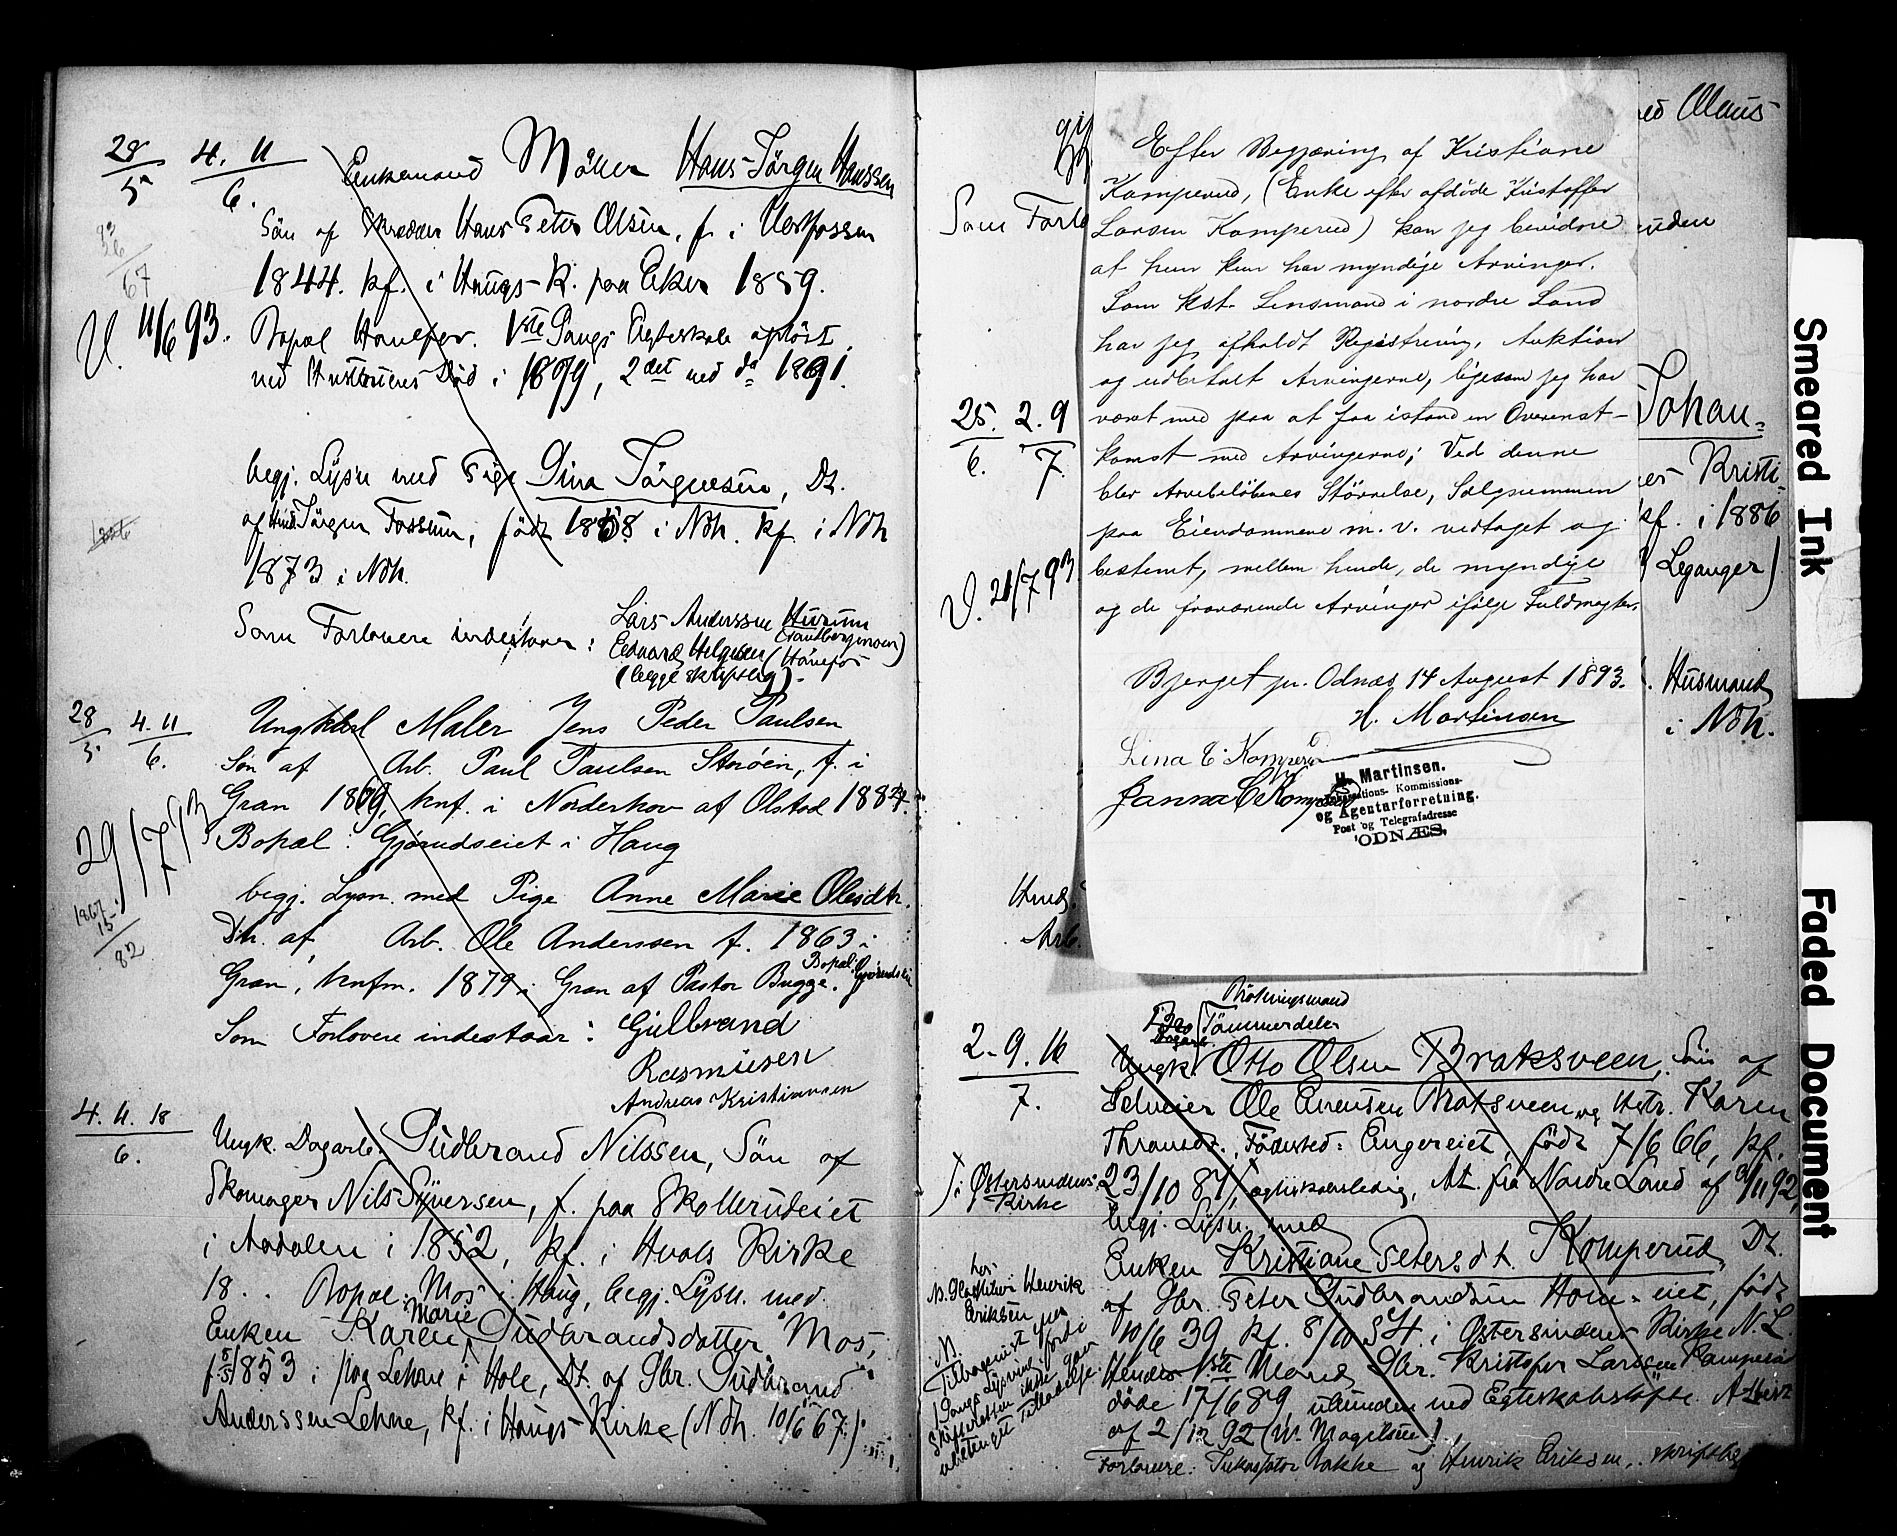 28/5 4. 11/6.
Enkemand Möller Hans Jörgen Hanssen
Sön af Skrædder Hans Peter Olsen, f. i Vestfossen
1844. kf. i Haugs-K. paa Eker 1859.
V. 11/6 93.
Bopæl Hönefos. 1ste Gangs Egteskab oplöst
ved Hustruens Död i 1879, 2det ved do 1891.
begj. Lysn. med Pige Dina Jörgensen, Dt.
af Jörgen Fossum, född 1858 i Ndh. kf. i Ndh
1873 i Ndh.
Som Forlovere indestaar: Lars Anderssen Hurum
Edvard Helgesen (Hönefos
(begge skriftlig).
28/5. 4. 11/6.
Ungkarl Maler Jens Peder Paulsen
Søn af Arb. Paul Paulsen Storöen, f. i
Gran 1869, knf. i Norderhov af Olstad 1884.
29/7 93
Bopæl: Gjørudseiet i Haug
begj. Lysn. med Pige Anne Marie Olesdtr.
1867
15
82
Dtr. af Arb. Ole Anderssen f. 1863 i
Gran, knfm. 1879 i Gran af Pastor Bugge. Bopæl: Gjørudseiet
Som Forlovere indestaar: Gulbrand
Rasmusen
Andreas Kristiansen
4. 11. 18/6.
Ungk. Dagarb. Gudbrand Nilssen, Sön af
Skomager Nils Syversen, f. paa Skollerudeiet
i Aadalen i 1852, kf. i Hvals Kirke
18 . . Bopæl: Mos i Haug, begj. Lysn. med
Enken Karen Marie Gudbrandsdatter Mos,
1853 i paa Lehne i Hole, Dt. af Gbr. Gudbrand
Anderssen Lehne, kf. i Haugs-Kirke (Ndh. 10/6 67.)
Olaus
Som Forlo
uden
25. 2. 9
6. 7.
V. 21/7 93
Johan=
Kristi-
kf. i 1886
Leganger)
Husmand
i Ndh.
Arb.
Efter Begjæring af Kristiane
Komperud, (Enke efter afdöde Kristoffer
Larsen Komperud) kan jeg bevidne
at hun kun har myndige Arvinger.
Som kst. Lensmand i nordre Land
har jeg afholdt Registrering, Auktion
og udbetalt Arvingerne, ligesom jeg har
været med paa at faa istand en Overenst-
komst med Arvingerne; Ved denne
blev Arvebeløbenes Størrelse, Salgsummen
paa Eiendommene m. v. vedtaget og
bestemt, mellem hende, de myndige
og de fraværende Arvinger ifølge Fuldmagter.
Bjerget pr. Odnæs 14 August 1893.
H. Martinsen
Lina C. Komperud
Janna C Komperud
H. Martinsen.
Kommissions-
og Agenturforretning.
Post og Telegrafadresse
ODNÆS.
2. 9. 16/7.
Tömmerdeler
Ungk. Otto Olsen Braksveen, Sön af
Selveier Ole Evensen Braksveen og Hstr. Karen
Thronsdt., Födested: Engereiet, född 7/6 66, kf.
i Østersindens Kirke
23/10 87, egteskabsledig, At. fra Nordre Land af 3/11 92,
begj. Lysn. med
Enken Kristiane Petersdt. Komperud, Dt.
af Gbr. Peter Gudbrandsen Hom-eiet, född
10/6 39, kf. 8/10 54 i Østersindens Kirke N. L.
Hendes 1ste Mand Gbr. Kristofer Larssen Komperud
döde 17/6 89, ubunden ved Egteskabslöfte. Attest
af 2/12 92 (W. Magelsen)
Forlovere: Bakke og Henrik Eriksen, skriftlig
Henrik
Eriksen
N.
Tilbagevist per
1 Gangs Lysning fordi
Skifteretten ikke gav
ubetinget Tilladelse.
Smeared Ink
Faded Document